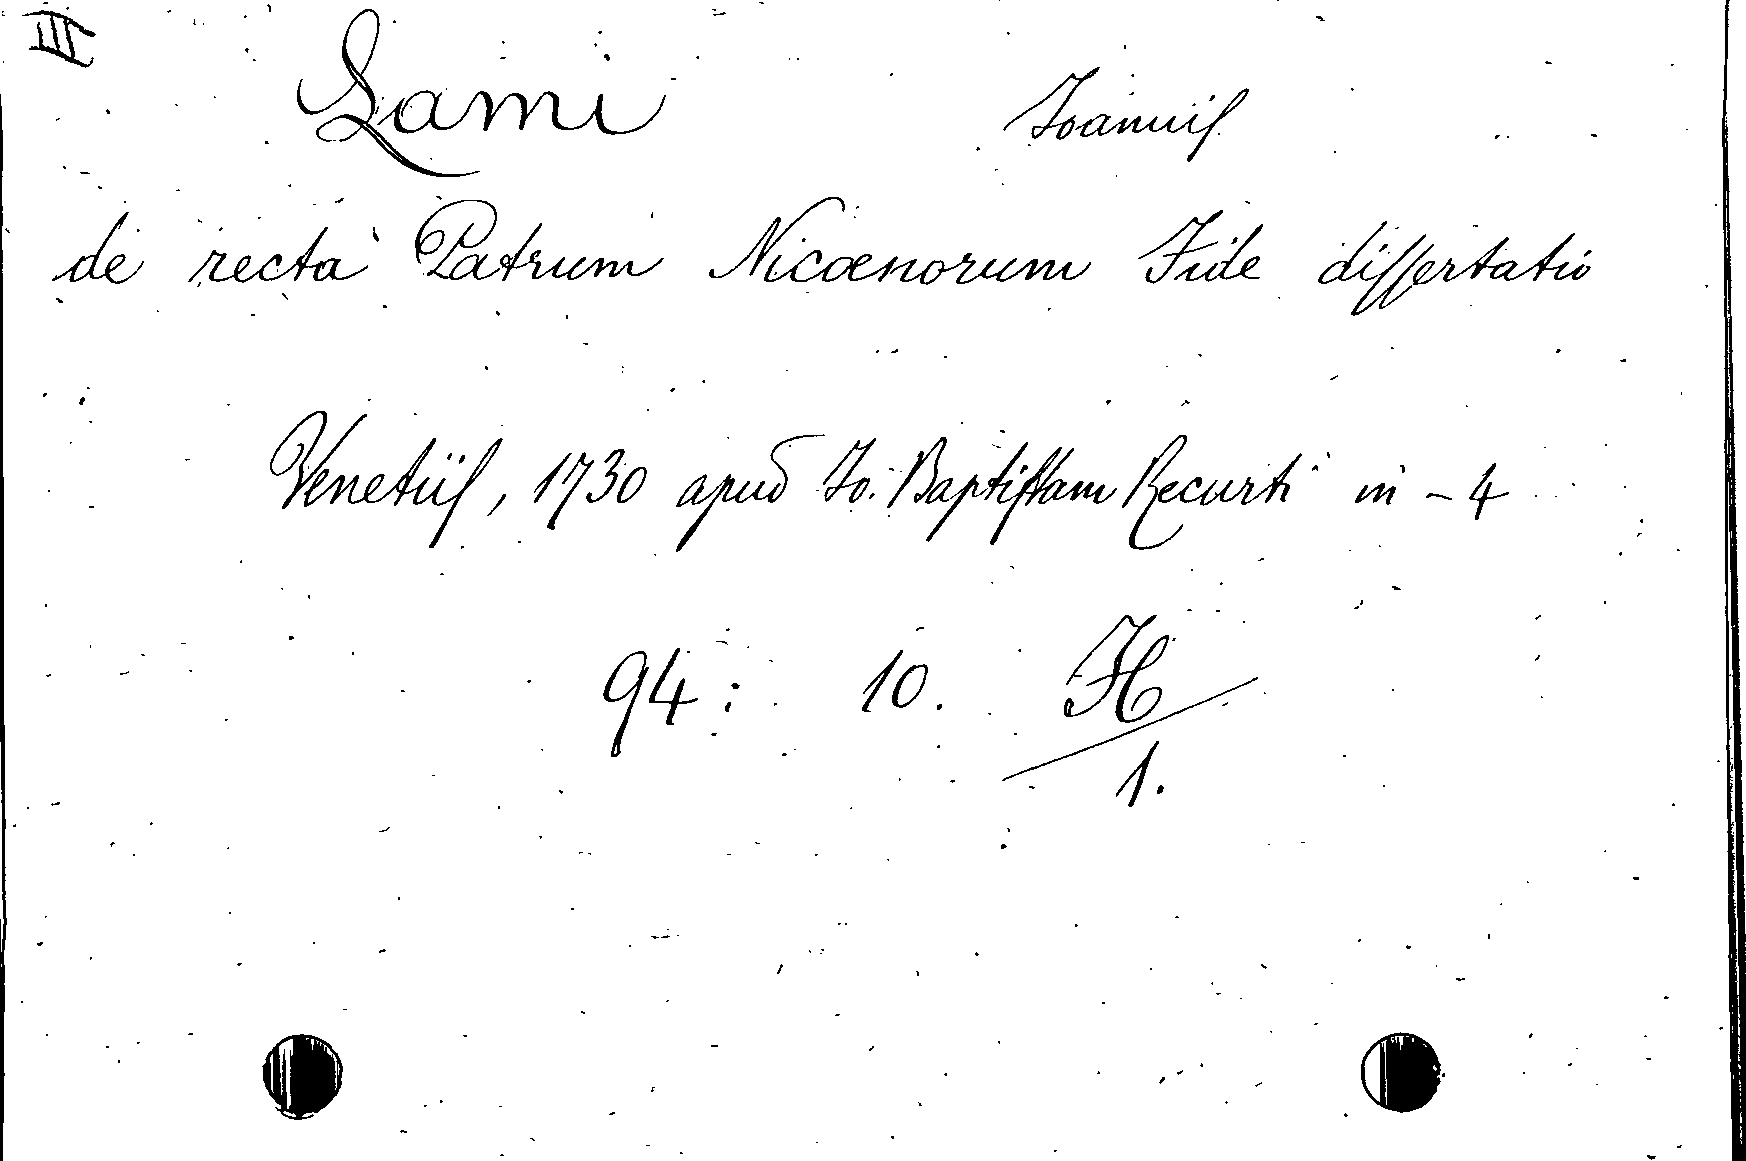 III
Lami Joannis
de recta Patrum Nicænorum Fide dissertatio
Venetiis, 1730 apud Jo. Baptistam Recurti in-4
94: 10. H
1.